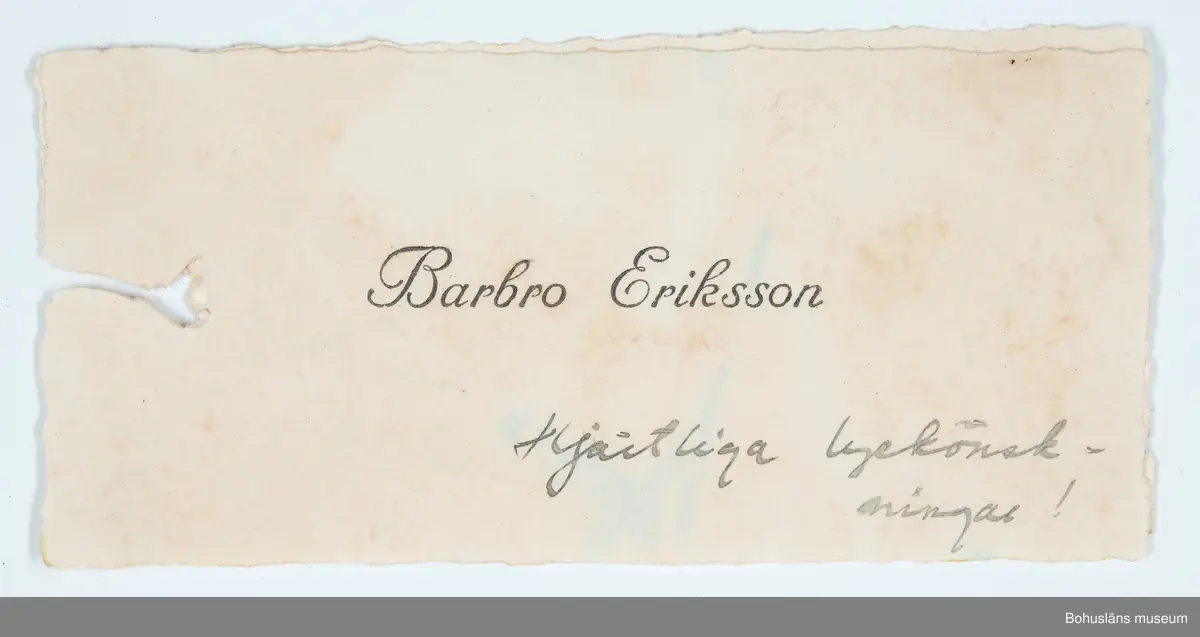 Barbro Eriksson
Hjärtliga lyckönsk-
ningar!
Bohusläns museum